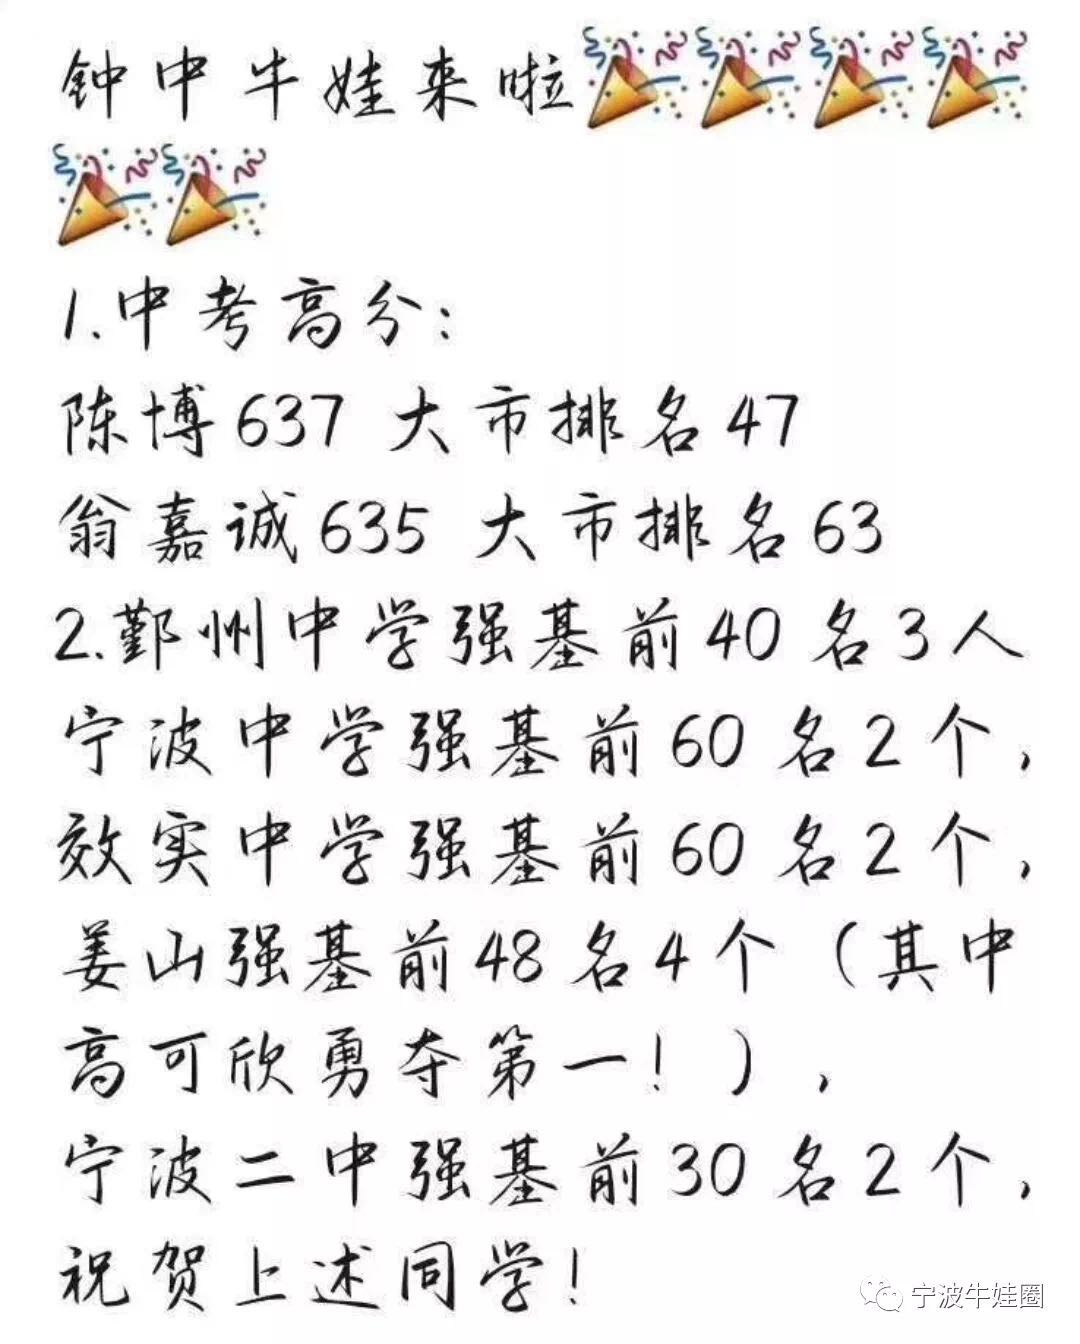 钟中牛娃来啦🎉🎉🎉🎉
🎉🎉
1.中考高分：
陈博637 大市排名47
翁嘉诚635 大市排名63
2.鄞州中学强基前40名3人
宁波中学强基前60名2个，
效实中学强基前60名2个，
姜山强基前48名4个（其中
高可欣勇夺第一！），
宁波二中强基前30名2个，
祝贺上述同学！
宁波牛娃圈